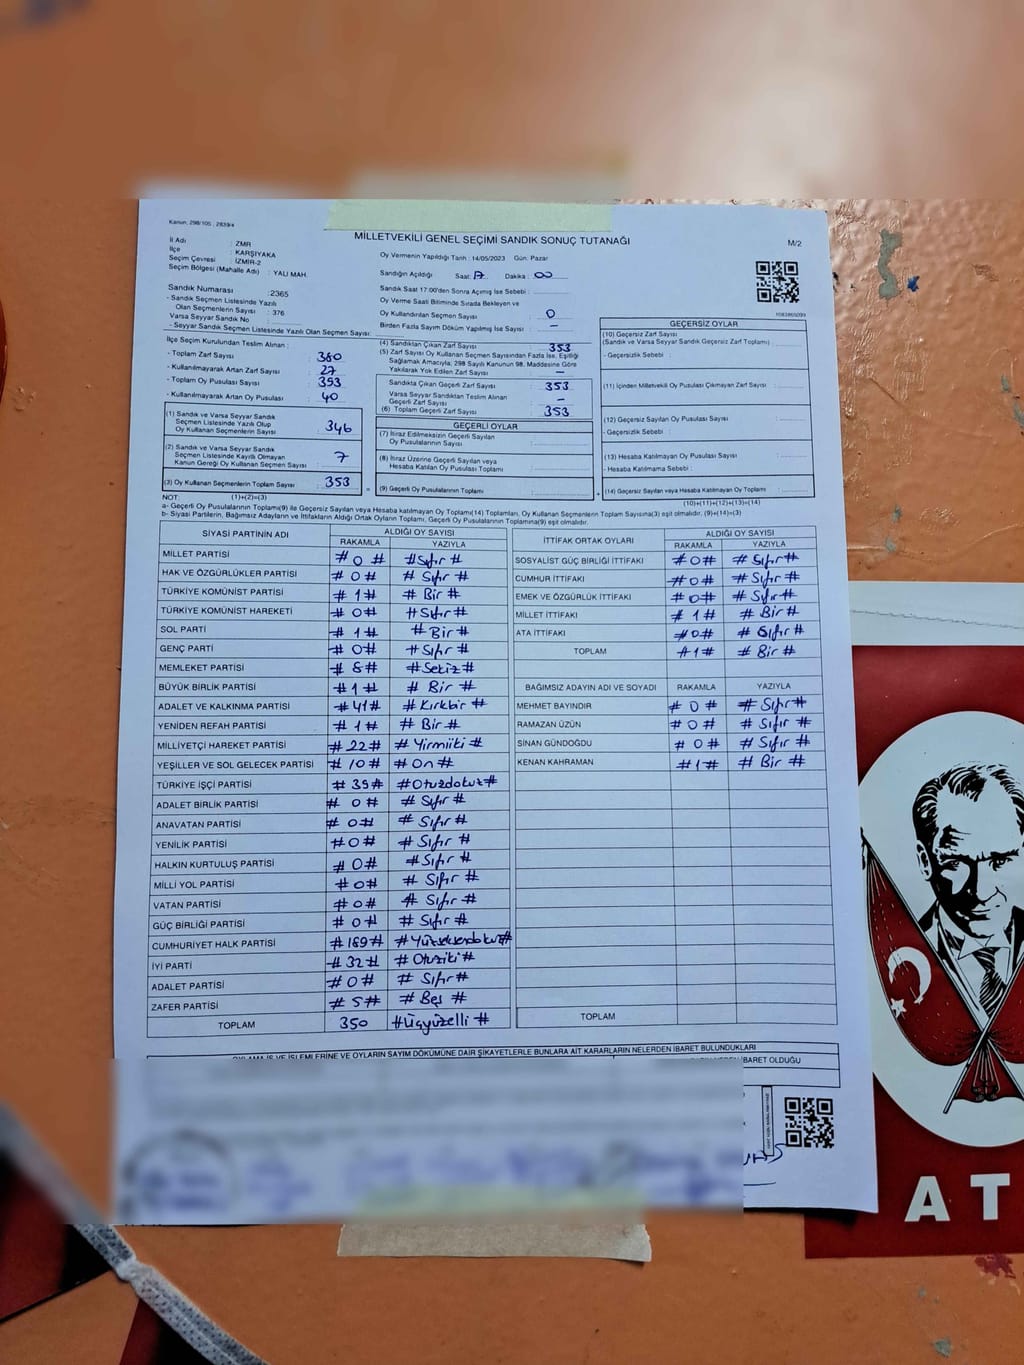 Kanun: 298/105 , 2839/4
MİLLETVEKİLİ GENEL SEÇİMİ SANDIK SONUÇ TUTANAĞI
M/2
İl Adı : ZMR
İlçe : KARŞIYAKA
Seçim Çevresi : İZMİR-2
Seçim Bölgesi (Mahalle Adı) : YALI MAH.
Sandık Numarası : 2365
- Sandık Seçmen Listesinde Yazılı
Olan Seçmenlerin Sayısı : 376
Varsa Seyyar Sandık No :
- Seyyar Sandık Seçmen Listesinde Yazılı Olan Seçmen Sayısı:
Oy Vermenin Yapıldığı Tarih : 14/05/2023 Gün: Pazar
Sandığın Açıldığı Saat: 17 Dakika : 00
Sandık Saat 17:00'den Sonra Açılmış İse Sebebi :
Oy Verme Saati Bitiminde Sırada Bekleyen ve
Oy Kullandırılan Seçmen Sayısı : 0
Birden Fazla Sayım Döküm Yapılmış İse Sayısı : –
İlçe Seçim Kurulundan Teslim Alınan :
- Toplam Zarf Sayısı : 380
- Kullanılmayarak Artan Zarf Sayısı : 27
- Toplam Oy Pusulası Sayısı : 393
- Kullanılmayarak Artan Oy Pusulası : 40
(1) Sandık ve Varsa Seyyar Sandık
Seçmen Listesinde Yazılı Olup
Oy Kullanan Seçmenlerin Sayısı : 346
(2) Sandık ve Varsa Seyyar Sandık
Seçmen Listesinde Kayıtlı Olmayan
Kanun Gereği Oy Kullanan Seçmen Sayısı : 7
(3) Oy Kullanan Seçmenlerin Toplam Sayısı : 353
(4) Sandıktan Çıkan Zarf Sayısı : 353
(5) Zarf Sayısı Oy Kullanan Seçmen Sayısından Fazla İse, Eşitliği
Sağlamak Amacıyla; 298 Sayılı Kanunun 98. Maddesine Göre
Yakılarak Yok Edilen Zarf Sayısı : –
Sandıkta Çıkan Geçerli Zarf Sayısı : 353
Varsa Seyyar Sandıktan Teslim Alınan
Geçerli Zarf Sayısı : –
(6) Toplam Geçerli Zarf Sayısı : 353
GEÇERLİ OYLAR
(7) İtiraz Edilmeksizin Geçerli Sayılan
Oy Pusulalarının Sayısı :
(8) İtiraz Üzerine Geçerli Sayılan veya
Hesaba Katılan Oy Pusulası Toplamı :
(9) Geçerli Oy Pusulalarının Toplamı :
1083865099
GEÇERSİZ OYLAR
(10) Geçersiz Zarf Sayısı
(Sandık ve Varsa Seyyar Sandık Geçersiz Zarf Toplamı) :
- Geçersizlik Sebebi :
(11) İçinden Milletvekili Oy Pusulası Çıkmayan Zarf Sayısı :
(12) Geçersiz Sayılan Oy Pusulası Sayısı :
- Geçersizlik Sebebi :
(13) Hesaba Katılmayan Oy Pusulası Sayısı :
- Hesaba Katılmama Sebebi :
(14) Geçersiz Sayılan veya Hesaba Katılmayan Oy Toplamı :
NOT: (1)+(2)=(3) (10)+(11)+(12)+(13)=(14)
a- Geçerli Oy Pusulalarının Toplamı(9) ile Geçersiz Sayılan veya Hesaba katılmayan Oy Toplamı(14) Toplamları, Oy Kullanan Seçmenlerin Toplam Sayısına(3) eşit olmalıdır, (9)+(14)=(3)
b- Siyasi Partilerin, Bağımsız Adayların ve İttifakların Aldığı Ortak Oyların Toplamı, Geçerli Oy Pusulalarının Toplamına(9) eşit olmalıdır.
SİYASİ PARTİNİN ADI ALDIĞI OY SAYISI
RAKAMLA YAZIYLA
MİLLET PARTİSİ # 0 # # Sıfır #
HAK VE ÖZGÜRLÜKLER PARTİSİ # 0 # # Sıfır #
TÜRKİYE KOMÜNİST PARTİSİ # 1 # # Bir #
TÜRKİYE KOMÜNİST HAREKETİ # 0 # # Sıfır #
SOL PARTİ # 1 # # Bir #
GENÇ PARTİ # 0 # # Sıfır #
MEMLEKET PARTİSİ # 8 # # Sekiz #
BÜYÜK BİRLİK PARTİSİ # 1 # # Bir #
ADALET VE KALKINMA PARTİSİ # 41 # # Kırkbir #
YENİDEN REFAH PARTİSİ # 1 # # Bir #
MİLLİYETÇİ HAREKET PARTİSİ # 22 # # Yirmiiki #
YEŞİLLER VE SOL GELECEK PARTİSİ # 10 # # On #
TÜRKİYE İŞÇİ PARTİSİ # 39 # # Otuzdokuz #
ADALET BİRLİK PARTİSİ # 0 # # Sıfır #
ANAVATAN PARTİSİ # 0 # # Sıfır #
YENİLİK PARTİSİ # 0 # # Sıfır #
HALKIN KURTULUŞ PARTİSİ # 0 # # Sıfır #
MİLLİ YOL PARTİSİ # 0 # # Sıfır #
VATAN PARTİSİ # 0 # # Sıfır #
GÜÇ BİRLİĞİ PARTİSİ # 0 # # Sıfır #
CUMHURİYET HALK PARTİSİ # 189 #
İYİ PARTİ # 32 # # Otuziki #
ADALET PARTİSİ # 0 # # Sıfır #
ZAFER PARTİSİ # 5 # # Beş #
TOPLAM 350 # Üçyüzelli #
İTTİFAK ORTAK OYLARI ALDIĞI OY SAYISI
RAKAMLA YAZIYLA
SOSYALİST GÜÇ BİRLİĞİ İTTİFAKI # 0 # # Sıfır #
CUMHUR İTTİFAKI # 0 # # Sıfır #
EMEK VE ÖZGÜRLÜK İTTİFAKI # 0 # # Sıfır #
MİLLET İTTİFAKI # 1 # # Bir #
ATA İTTİFAKI # 0 # # Sıfır #
TOPLAM # 1 # # Bir #
BAĞIMSIZ ADAYIN ADI VE SOYADI RAKAMLA YAZIYLA
MEHMET BAYINDIR # 0 # # Sıfır #
RAMAZAN ÜZÜN # 0 # # Sıfır #
SİNAN GÜNDOĞDU # 0 # # Sıfır #
KENAN KAHRAMAN # 1 # # Bir #
TOPLAM
OYLAMA İŞ VE İŞLEMLERİNE VE OYLARIN SAYIM DÖKÜMÜNE DAİR ŞİKAYETLERLE BUNLARA AİT KARARLARIN NELERDEN İBARET BULUNDUKLARI
İBARET OLDUĞU
AT